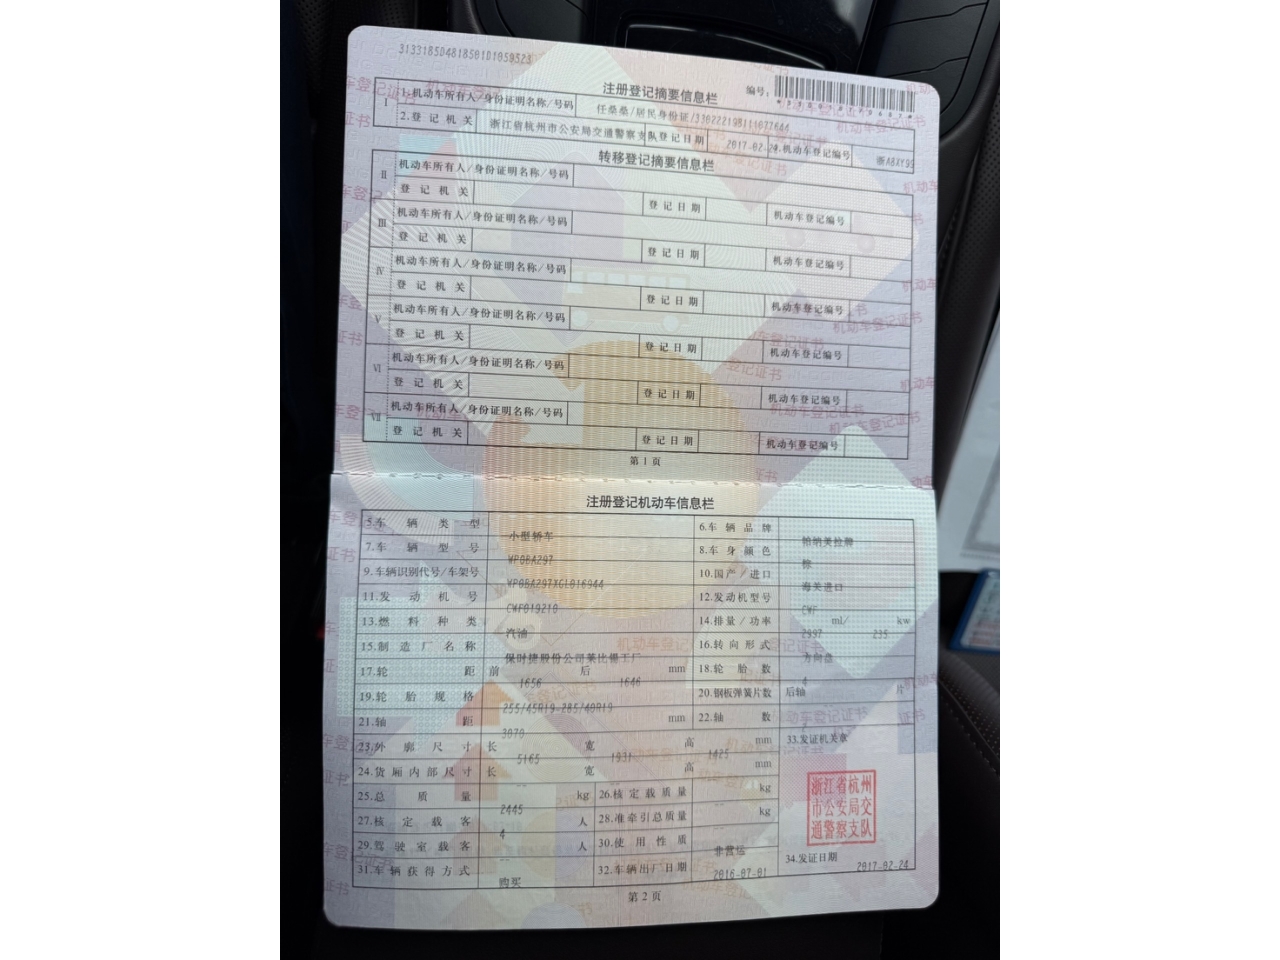 31331850481850101059523
注册登记摘要信息栏
编号:
I 1.机动车所有人/身份证明名称/号码 任桑桑/居民身份证/330222198111071644
2.登记机关 浙江省杭州市公安局交通警察支队 登记日期 2017-02-24 4.机动车登记编号 浙A8XY99
转移登记摘要信息栏
II 机动车所有人/身份证明名称/号码
登记机关 登记日期 机动车登记编号
III 机动车所有人/身份证明名称/号码
登记机关 登记日期 机动车登记编号
IV 机动车所有人/身份证明名称/号码
登记机关 登记日期 机动车登记编号
V 机动车所有人/身份证明名称/号码
登记机关 登记日期 机动车登记编号
VI 机动车所有人/身份证明名称/号码
登记机关 登记日期 机动车登记编号
VII 机动车所有人/身份证明名称/号码
登记机关 登记日期 机动车登记编号
第1页
注册登记机动车信息栏
5.车辆类型 小型轿车 6.车辆品牌 帕纳美拉牌
7.车辆型号 WP0BA297 8.车身颜色 棕
9.车辆识别代号/车架号 WP0BA297XGL016944 10.国产/进口 海关进口
11.发动机号 CWF019210 12.发动机型号 CWF
13.燃料种类 汽油 14.排量/功率 2997 ml/ 235 kw
15.制造厂名称 保时捷股份公司莱比锡工厂 16.转向形式 方向盘
17.轮距 前 1656 后 1646 mm 18.轮胎数 4
19.轮胎规格 255/45R19-285/40R19 20.钢板弹簧片数 后轴 片
21.轴距 3070 mm 22.轴数
23.外廓尺寸 长 5165 宽 1931 高 1425 mm 33.发证机关章
24.货厢内部尺寸 长 -- 宽 -- 高 -- mm
浙江省杭州
市公安局交
通警察支队
25.总质量 2445 kg 26.核定载质量 -- kg
27.核定载客 4 人 28.准牵引总质量 -- kg
29.驾驶室载客 -- 人 30.使用性质 非营运 34.发证日期 2017-02-24
31.车辆获得方式 购买 32.车辆出厂日期 2016-07-01
第2页